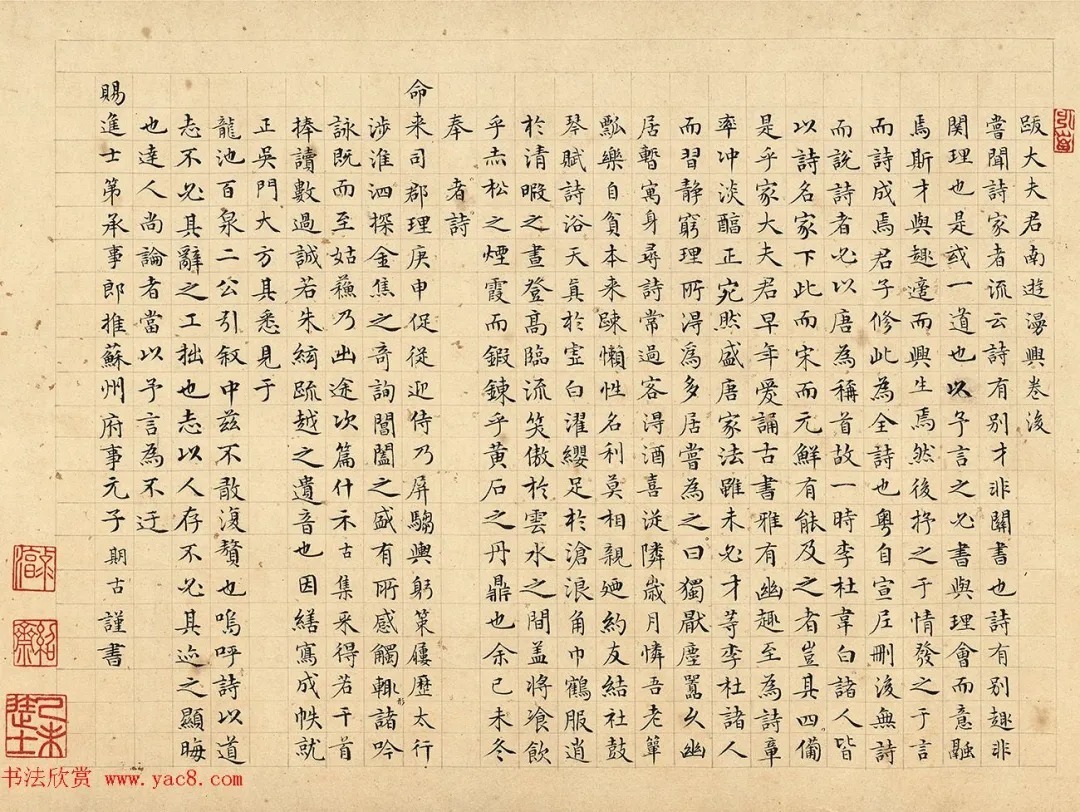 跋大夫君南遊漫興卷後
嘗聞詩家者流云詩有別才非關書也詩有別趣非
關理也是或一道也以予言之必書與理會而意融
焉斯才與趣邊而興生焉然後抒之于情發之于言
而詩成焉君子修此為全詩也粵自宣尼刪後無詩
而說詩者必以唐為稱首故一時李杜韋白諸人皆
以詩名家下此而宋而元鮮有能及之者豈其四備
是乎家大夫君早年愛誦古書雅有幽趣至為詩章
率冲淡醞正宛然盛唐家法雖未必才等李杜諸人
而習靜窮理所得為多居嘗為之曰獨厭塵囂久幽
居暫寓身尋詩常過客得酒喜從隣歲月憐吾老簞
瓢樂自貧本來踈懶性名利莫相親廼約友結社鼓
琴賦詩浴天真於虛白濯纓足於滄浪角巾鶴服逍
於清暇之晝登高臨流笑傲於雲水之間盖將飧飲
乎赤松之煙霞而鍛鍊乎黃石之丹鼎也余己未冬
奉 者詩
命来司郡理庚申促從迎侍乃屏騶輿躬策屨歷太行
涉淮泗探金焦之奇詢閶闔之盛有所感觸輒形諸吟
詠既而至姑蘓乃出途次篇什示古集采得若干首
捧讀數過誠若朱絃疏越之遺音也因繕寫成帙就
正吳門大方其悉見于
龍池百泉二公引敘中茲不敢復贅也嗚呼詩以道
志不必其辭之工拙也志以人存不必其迹之顯晦
也達人尚論者當以予言為不迂
賜進士第承事郎推蘇州府事元子期古謹書
己未進士
书法欣赏 www.yac8.com